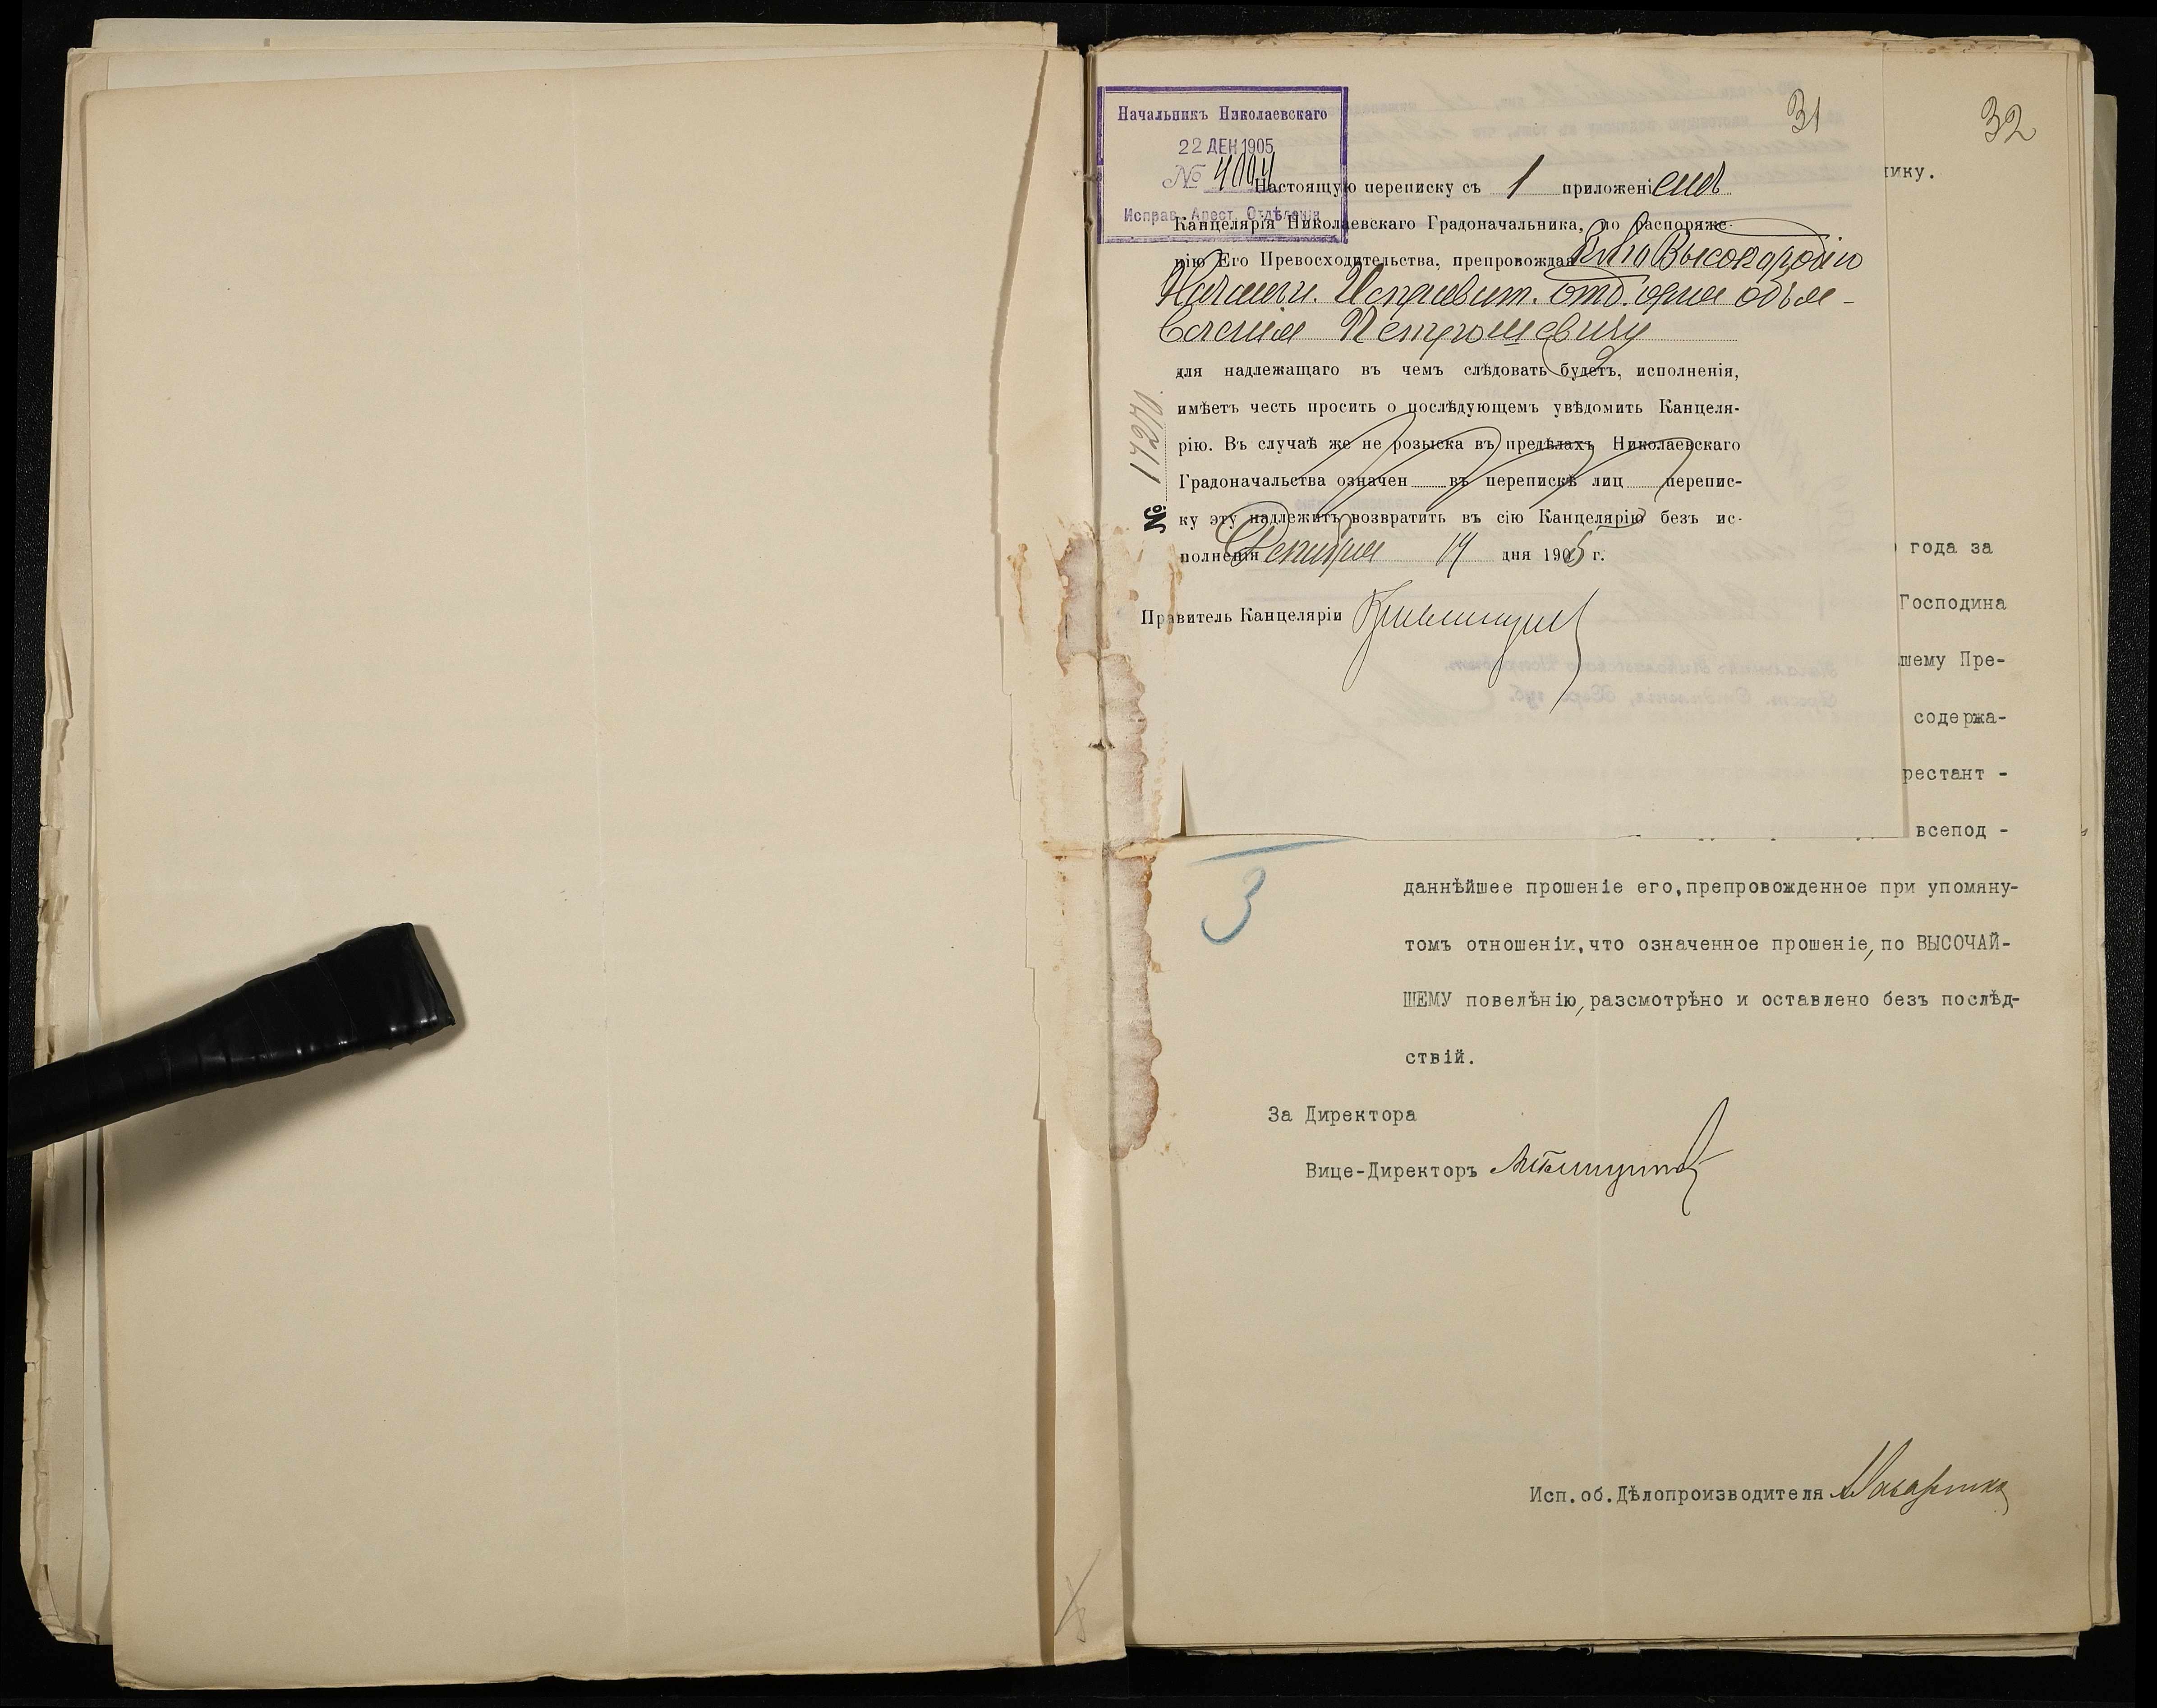 31
32
Начальникъ Николаевскаго
22 ДЕК 1905
№
Исправ. Арест. Отдѣленія
Настоящую переписку съ 1 приложеніемъ
Канцелярія Николаевскаго Градоначальника, по распоряже-
нію Его Превосходительства, препровождая Его Высокородію
Начальн. Исправит. отд. для объя-
вленія Петрошевичу
для надлежащаго въ чемъ слѣдовать будетъ, исполненія,
имѣетъ честь просить о послѣдующемъ увѣдомить Канцеля-
рію. Въ случаѣ же не розыска въ предѣлахъ Николаевскаго
Градоначальства означен въ перепискѣ лиц перепис-
ку эту надлежитъ возвратить въ сію Канцелярію безъ ис-
полненія Декабря 19 дня 1905 г.
№ 17270
Правитель Канцеляріи
ику.
года за
Господина
шему Пре-
содержа-
рестант -
всепод -
3
даннѣйшее прошеніе его, препровожденное при упомяну-
томъ отношеніи, что означенное прошеніе, по ВЫСОЧАЙ-
ШЕМУ повелѣнію, разсмотрѣно и оставлено безъ послѣд-
ствій.
За Директора
Вице-Директоръ
Исп. об. Дѣлопроизводителя